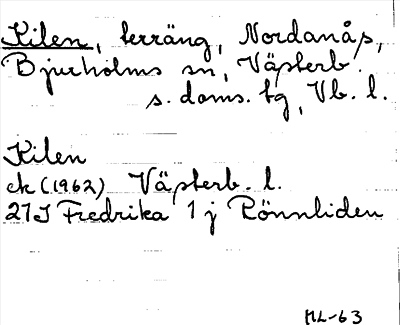 Kilen, terräng, Nordanås,
Bjurholms sn, Västerb.
s. doms. tg, Vb. l.
Kilen
ek (1962) Västerb. l.
21J Fredrika 1 j Rönnliden
ML-63